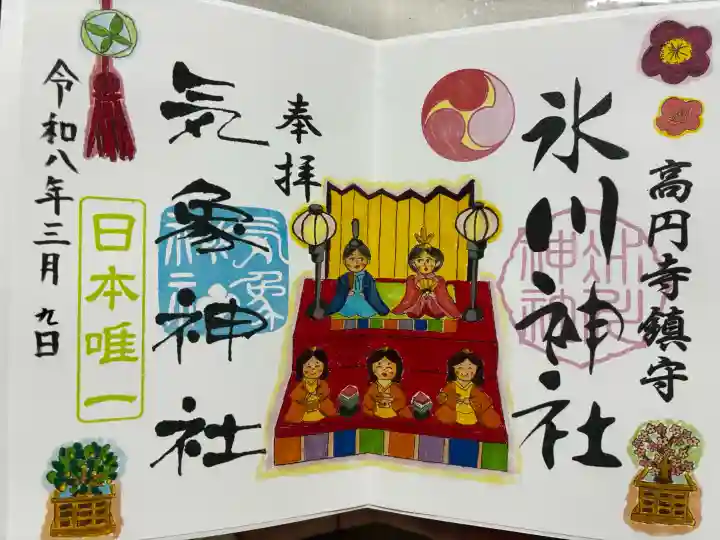 高円寺鎮守
氷川神社
氷川神社
奉拝
気象神社
気象神社
日本唯一
令和八年三月九日